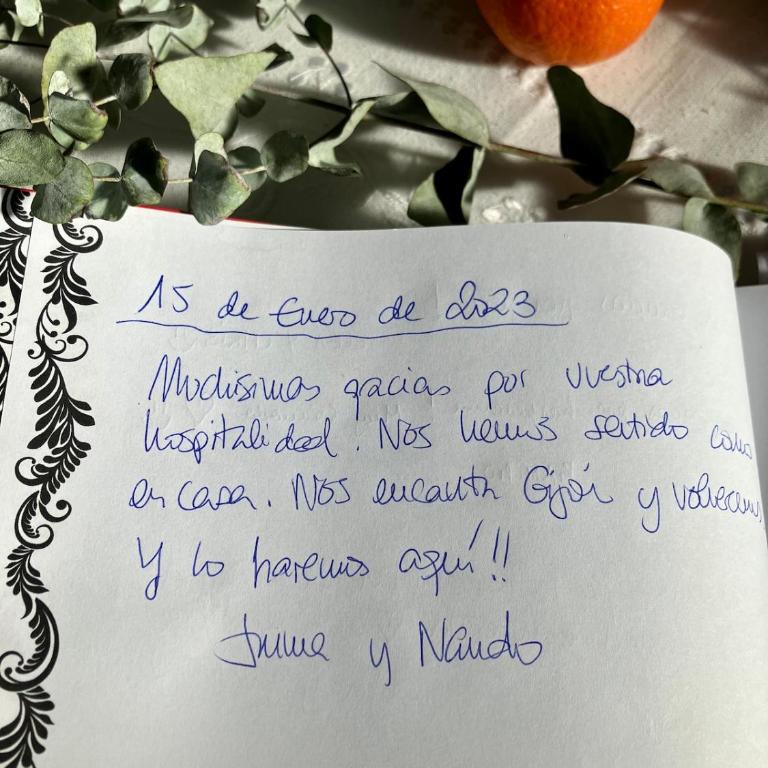 15 de Enero de 2023
Muchísimas gracias por vuestra
hospitalidad. Nos hemos sentido como
en casa. Nos encanta Gijón y volveremos
Y lo haremos aquí!!
Inma y Nando